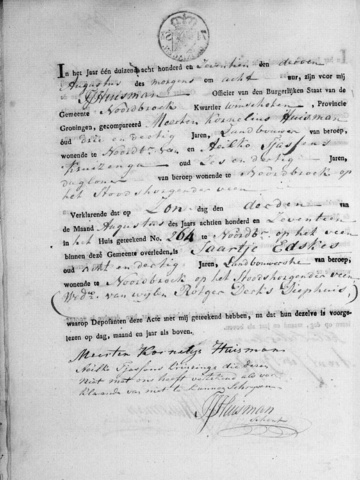 In het Jaar één duizend acht honderd en Seventien den derden
Augustus des morgens om acht uur, zijn voor mij
Huisman Officier van den Burgerlijken Staat van de
Gemeente Noordbroek Kwartier Winschoten, Provincie
Groningen, gecompareerd Meerten Kornelius Huisman
oud drie en dertig Jaren, Landbouwer van beroep,
wonende te Noordbr. van en Heilko Tjassens
Kruizenga oud Ses en dertig Jaren,
van beroep wonende te Noordbroek op
het Stootshorger veen
Verklarende dat op Zon dag den derden van
de Maand Augustus des Jaars achtien honderd en Seventeen
in het Huis geteekend No. 264 te Noordbr. op het veen
binnen deal Gemeente overleden, is Taartje Edskes
oud acht en dertig Jaren, Landbouwersche van beroep,
wonende te Noordbroek op het Stootshorger veen
Wedw. van wijlen Rotger Derks Diephuis,
waarop Deposanten deze Acte met mij geteekend hebben, na dat hun dezelve is voorge-
lezen op dag, maand en jaar als boven.
Meerten Kornelijs Huisman
Heilko Tjassens Kruizinga die deze
Niet met ons heeft
klaarde van niet te kunnen Schrijven
Huisman